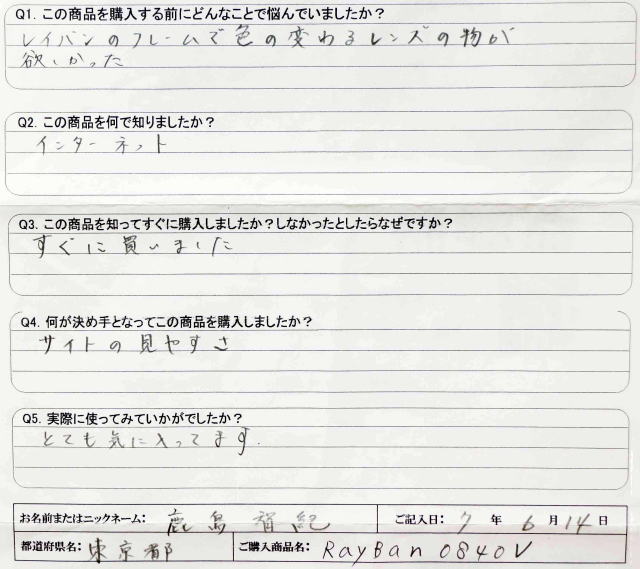 Q1. この商品を購入する前にどんなことで悩んでいましたか？
レイバンのフレームで色の変わるレンズの物が
欲しかった
Q2. この商品を何で知りましたか？
インターネット
Q3. この商品を知ってすぐに購入しましたか？しなかったとしたらなぜですか？
すぐに買いました
Q4. 何が決め手となってこの商品を購入しましたか？
サイトの見やすさ
Q5. 実際に使ってみていかがでしたか？
とても気に入ってます.
お名前またはニックネーム: 鹿島 紀 ご記入日: 7 年 6 月 14 日
都道府県名: 東京都 ご購入商品名: RayBan 0840V